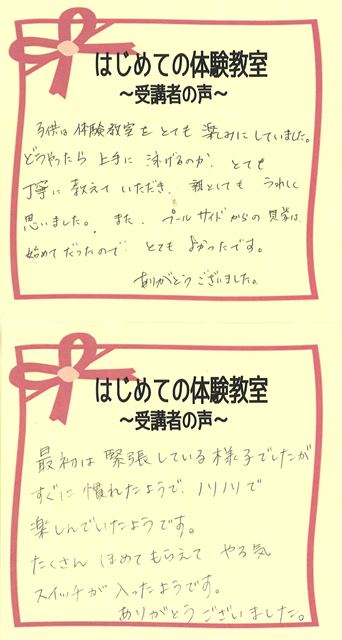 はじめての体験教室
～受講者の声～
子供は体験教室をとても楽しみにしていました。
どうやったら上手に泳げるのか、とても
丁寧に教えていただき、親としてもうれしく
思いました。また、プールサイドからの見学は
始めてだったので、とてもよかったです。
ありがとうございました。
はじめての体験教室
～受講者の声～
最初は緊張している様子でしたが
すぐに慣れたようで、ノリノリで
楽しんでいたようです。
たくさんほめてもらえてやる気
スイッチが入ったようです。
ありがとうございました。